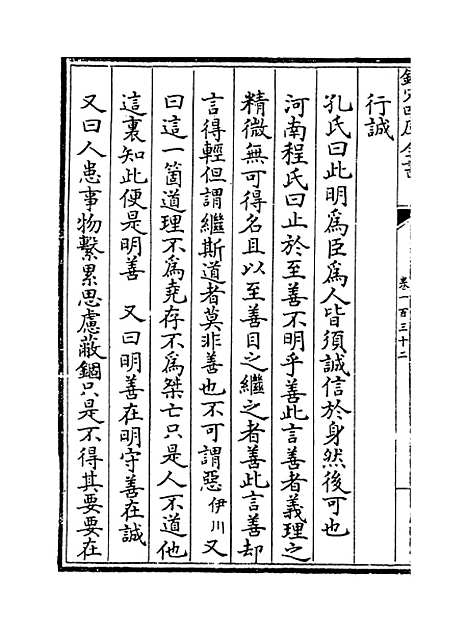 欽定四庫全書
卷一百三十二
行誠
孔氏曰此明為臣為人皆須誠信於身然後可也
河南程氏曰止於至善不明乎善此言善者義理之
精微無可得名且以至善目之繼之者善此言善却
言得輕但謂繼斯道者莫非善也不可謂惡 伊川 又
曰這一箇道理不為堯存不為桀亡只是人不道他
這裏知此便是明善 又曰明善在明守善在誠
又曰人患事物繫累思慮蔽錮只是不得其要要在